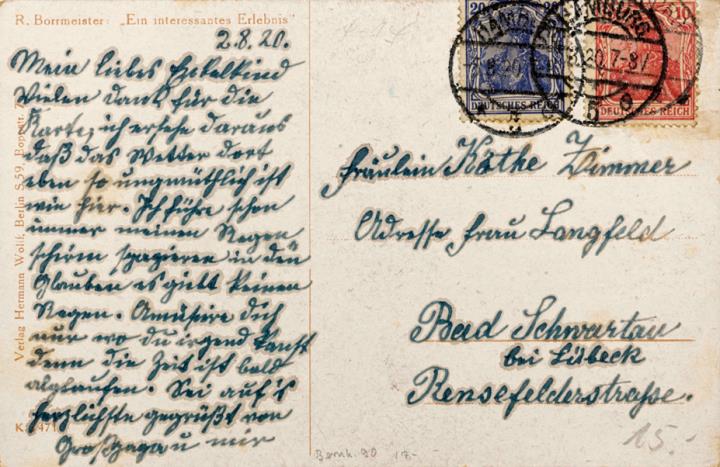 R. Borrmeister: „Ein interessantes Erlebnis"
2.8.20.
Mein liebes Enkelkind
Vielen dank für die
Karte, ich ersehe daraus
daß das Wetter dort
eben so ungmüthlich ist
wie hier. Ich führe schon
immer meinen Regen
schirm spazieren in den
Glauben es giebt keinen
Regen. Amüsire dich
nur wo du irgend kanst
denn die Zeit ist bald
abglaufen. Sei auf's
herzlichste gegrüßt von
Großpapa u mir
Verlag Hermann Wolff, Berlin S.59, Boppstr. 7
K 471
20 20
DEUTSCHES REICH
10
DEUTSCHES REICH
HAMBURG
HAMBURG
20.7-8V
Fräulein Käthe Zimmer
Adresse Frau Langfeld
Bad Schwartau
bei Lübeck
Rensefelderstraße.
15.-